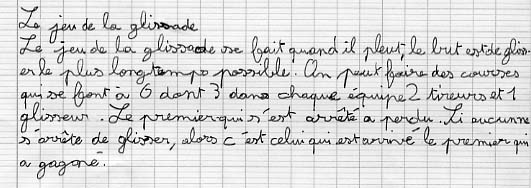 Le jeu de la glissade
Le jeu de la glissade se fait quand il pleut, le but est de gliss-
er le plus longtemps possible. On peut faire des courses
qui se font à 6 dont 3 dans chaque équipe 2 tireurs et 1
glisseur. Le premier qui s'est arrêté a perdu. Si aucunne
s'arrête de glisser, alors c'est celui qui est arrivé le premier qui
a gagné.